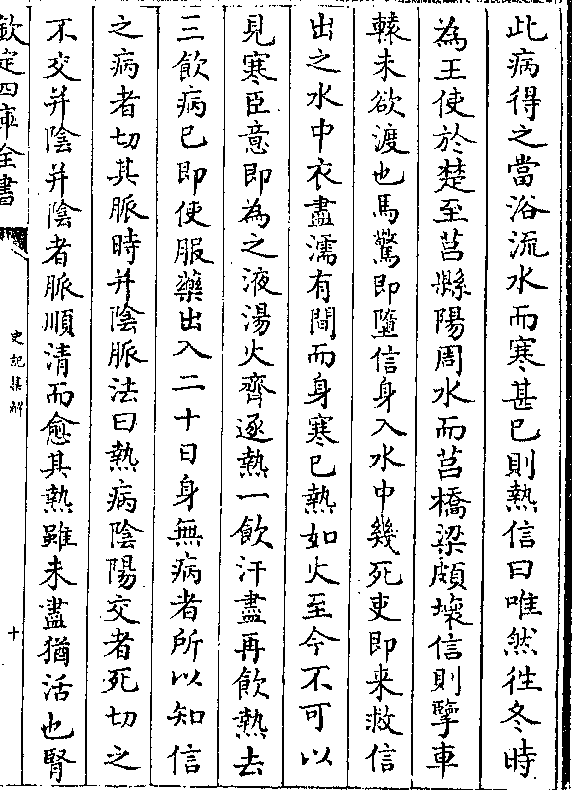 此病得之當浴流水而寒甚已則熱信曰唯然往冬時
為王使於楚至莒縣陽周水而莒橋梁頗壞信則擥車
轅未欲渡也馬驚即墮信身入水中幾死吏即来救信
出之水中衣盡濡有間而身寒已熱如火至今不可以
見寒臣意即為之液湯火齊逐熱一飲汗盡再飲熱去
三飲病已即使服藥出入二十日身無病者所以知信
之病者切其脈時并陰脈法曰熱病陰陽交者死切之
不交并陰并陰者脈順清而愈其熱雖未盡猶活也腎
欽定四庫全書
史記集解
十